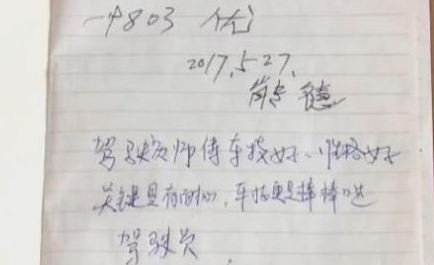 803 优
2017.5.27.
驾驶员师傅车技好、性格好
关键是有耐心,车技更是棒棒哒
驾驶员